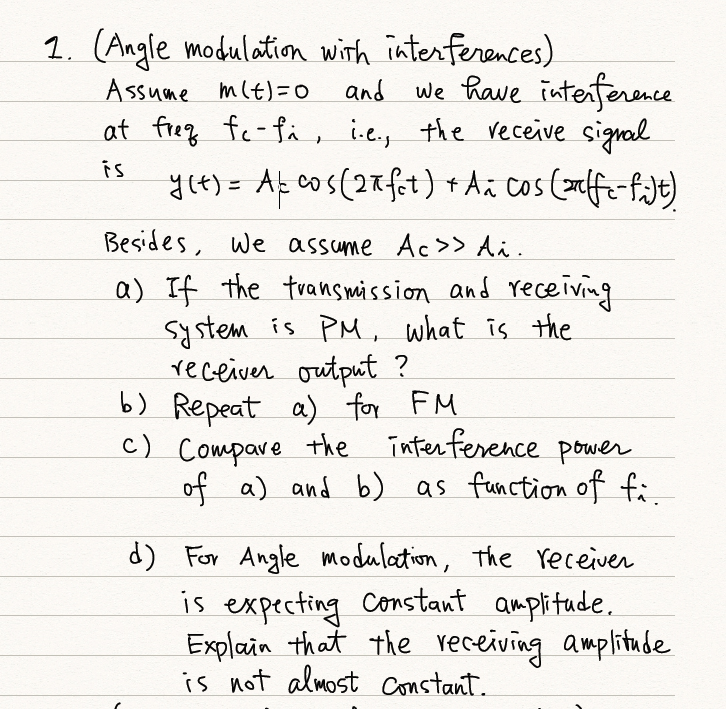 1. (Angle modulation with interferences)
Assume m(t)=0 and we have interference
at freq fc-fi, i.e., the receive signal
is y(t) = Ac cos(2πfct) + Ai cos(2π(fc-fi)t).
Besides, we assume Ac>> Ai.
a) If the transmission and receiving
system is PM, what is the
receiver output?
b) Repeat a) for FM
c) Compare the interference power
of a) and b) as function of fi.
d) For Angle modulation, the receiver
is expecting constant amplitude.
Explain that the receiving amplitude
is not almost constant.